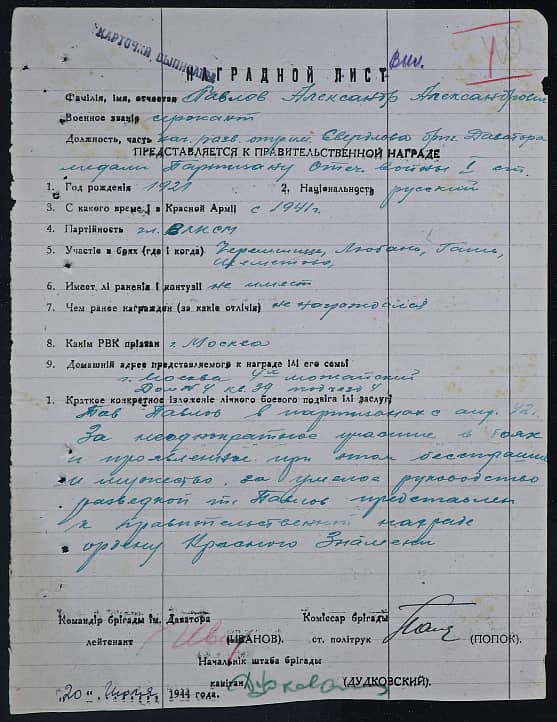 КАРТОЧКА ВЫПИСАНА
НАГРАДНОЙ ЛИСТ
I
Фаміліа, імя, отчество Павлов Александр Александрович
Военное званіе сержант
Должность, часть нач. разв. отряд Свердлова бриг. Даватора
ПРЕДСТАВЛЯЕТСЯ К ПРАВИТЕЛЬСТВЕННОЙ НАГРАДЕ
медали Партизану Отеч войны I ст.
1. Год рожденія 1921 2. Національность русский
3. С какого времені в Красной Арміі с 1941г.
4. Партійность чл. ВЛКСМ
5. Участіе в боях (где і когда) Любань,
6. Имеет лі раненія і контузіі не имеет
7. Чем ранее награжден (за какіе отлічія) не награждался
8. Какім РВК прізван г. Москва
9. Домашній адрес представляемого к награде ілі его семьі
г. Москва 4й можайский
Дом № 4 кв. 39 подъезд 4
1. Краткое конкретное ізложеніе лічного боевого подвіга ілі заслуг
Тов Павлов в партизанах с апр. 42г.
За неоднократное участие в боях
и проявленное при этом бесстрашие
и мужество, за умелое руководство
разведкой т. Павлов представлен
к правительственной награде
ордену Красного Знамени
Командір брігады ім. Даватора Коміссар брігады
лейтенант (ІВАНОВ). ст. політрук (ПОПОК).
Начальнік штаба брігады
капітан (ДУДКОВСКИЙ).
„20" Июня 1944 года.